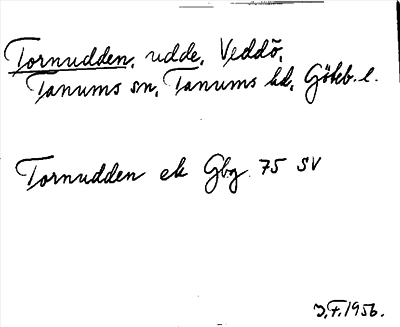 Tornudden, udde, Veddö,
Tanums sn, Tanums hd, Göteb. l.
Tornudden ek Gbg 75 SV
J.F. 1956.